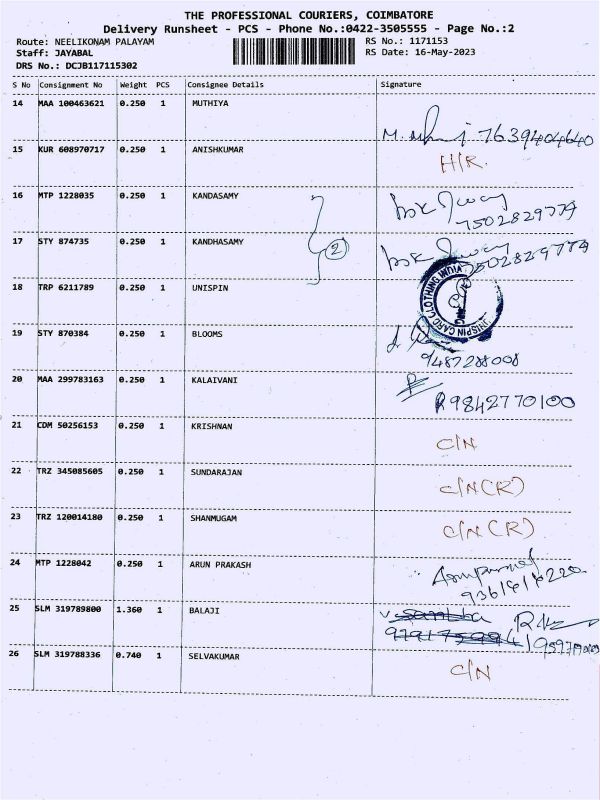 THE PROFESSIONAL COURIERS, COIMBATORE
Delivery Runsheet - PCS - Phone No.:0422-3505555 - Page No.:2
Route: NEELIKONAM PALAYAM RS No.: 1171153
Staff: JAYABAL RS Date: 16-May-2023
DRS No.: DCJB117115302
S No Consignment No Weight PCS Consignee Details Signature
14 MAA 100463621 0.250 1 MUTHIYA
7639404640
15 KUR 608970717 0.250 1 ANISHKUMAR H/R.
16 MTP 1228035 0.250 1 KANDASAMY
7502829779
17 STY 874735 0.250 1 KANDHASAMY
2 7502829779
18 TRP 6211789 0.250 1 UNISPIN
UNISPIN CARD CLOTHING INDIA
19 STY 870384 0.250 1 BLOOMS
9487288008
20 MAA 299783163 0.250 1 KALAIVANI
9842770100
21 CDM 50256153 0.250 1 KRISHNAN C/N
22 TRZ 345085605 0.250 1 SUNDARAJAN C/N(R)
23 TRZ 120014180 0.250 1 SHANMUGAM C/N(R)
24 MTP 1228042 0.250 1 ARUN PRAKASH
25 SLM 319789800 1.360 1 BALAJI
26 SLM 319788336 0.740 1 SELVAKUMAR C/N